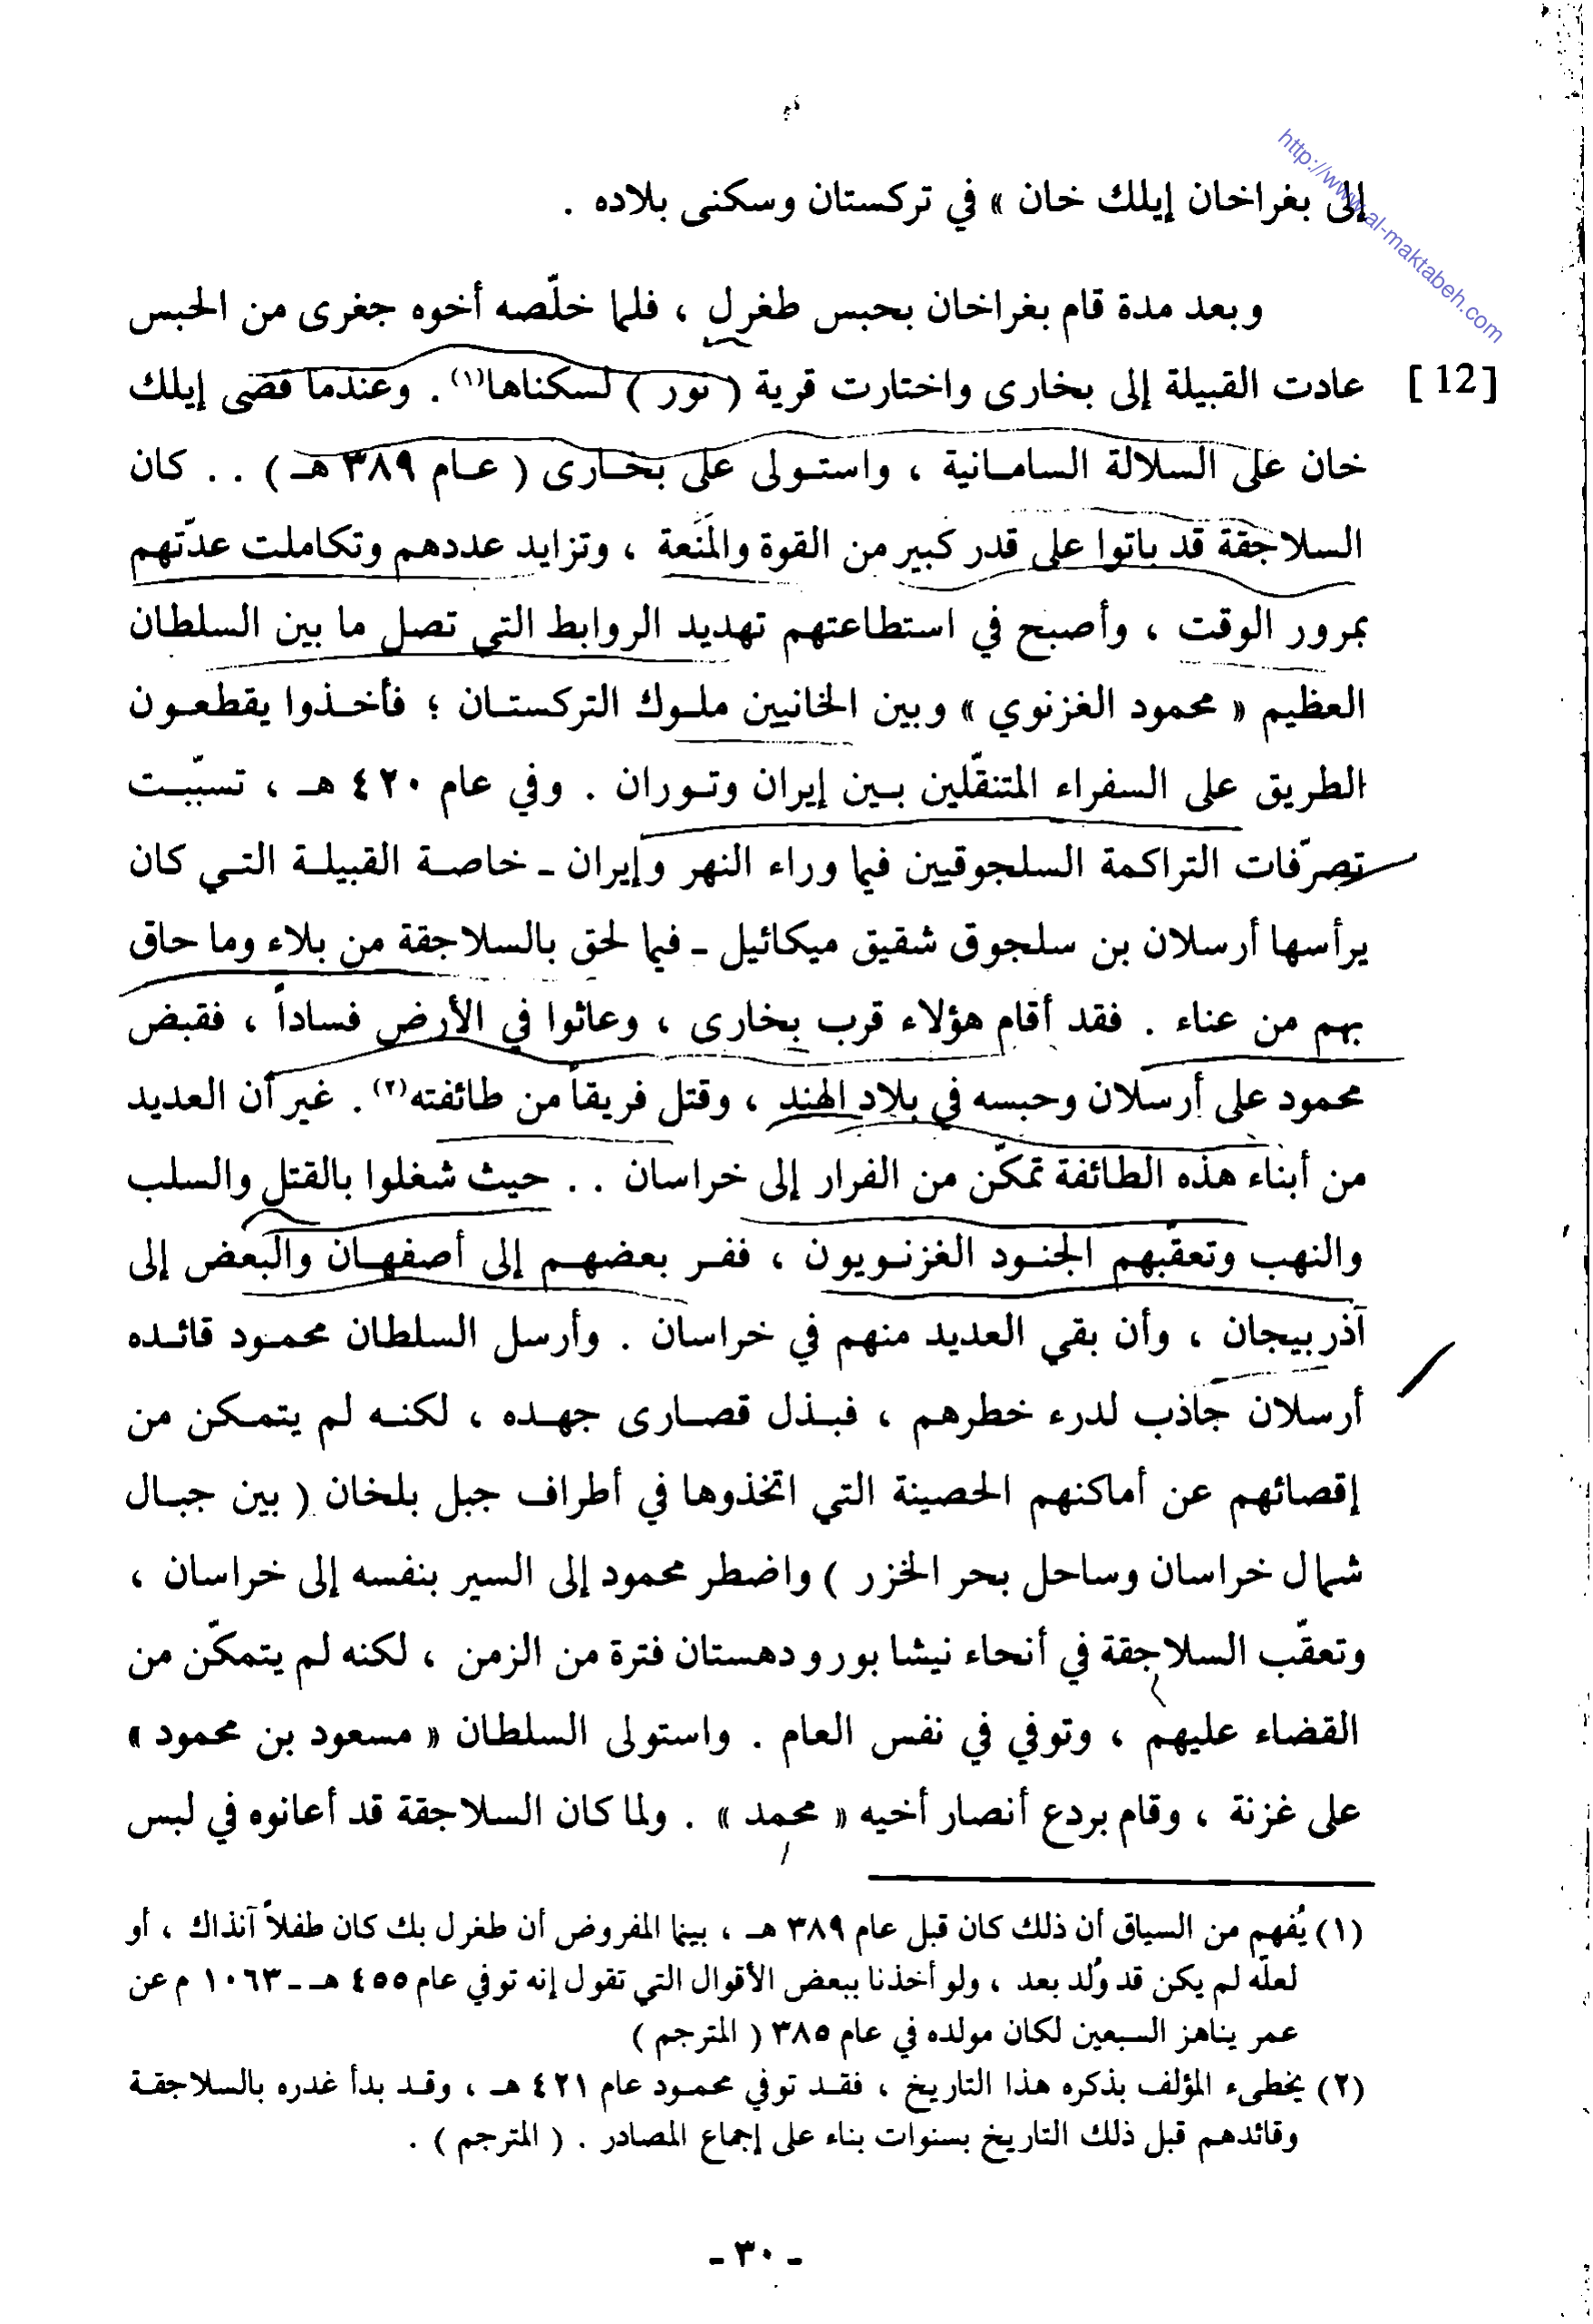 http://www.al-maktabeh.com
إلى بغراخان إيلك خان » في تركستان وسكنى بلاده .
وبعد مدة قام بغراخان بحبس طغرل ، فلما خلّصه أخوه جغرى من الحبس
[ 12 ] عادت القبيلة إلى بخارى واختارت قرية ( نور ) لسكناها(١) . وعندما قضى إيلك
خان على السلالة السامانية ، واستولى على بخارى ( عام ٣٨٩ هـ ) . . كان
السلاجقة قد باتوا على قدر كبير من القوة والمَنَعة ، وتزايد عددهم وتكاملت عدّتهم
بمرور الوقت ، وأصبح في استطاعتهم تهديد الروابط التي تصل ما بين السلطان
العظيم « محمود الغزنوي » وبين الخانيين ملوك التركستان ؛ فأخذوا يقطعون
الطريق على السفراء المتنقّلين بين إيران وتوران . وفي عام ٤٢٠ هـ ، تسبّبت
تصرّفات التراكمة السلجوقيين فيما وراء النهر وإيران ـ خاصة القبيلة التي كان
يرأسها أرسلان بن سلجوق شقيق ميكائيل ـ فيما لحق بالسلاجقة من بلاء وما حاق
بهم من عناء . فقد أقام هؤلاء قرب بخارى ، وعاثوا في الأرض فساداً ، فقبض
محمود على أرسلان وحبسه في بلاد الهند ، وقتل فريقاً من طائفته(٢) . غير أن العديد
من أبناء هذه الطائفة تمكّن من الفرار إلى خراسان . . حيث شغلوا بالقتل والسلب
والنهب وتعقّبهم الجنود الغزنويون ، ففر بعضهم إلى أصفهان والبعض إلى
آذربيجان ، وأن بقي العديد منهم في خراسان . وأرسل السلطان محمود قائده
أرسلان جاذب لدرء خطرهم ، فبذل قصارى جهده ، لكنه لم يتمكن من
إقصائهم عن أماكنهم الحصينة التي اتخذوها في أطراف جبل بلخان ( بين جبال
شمال خراسان وساحل بحر الخزر ) واضطر محمود إلى السير بنفسه إلى خراسان ،
وتعقّب السلاجقة في أنحاء نيشابور ودهستان فترة من الزمن ، لكنه لم يتمكّن من
القضاء عليهم ، وتوفي في نفس العام . واستولى السلطان « مسعود بن محمود »
على غزنة ، وقام بردع أنصار أخيه « محمد » . ولما كان السلاجقة قد أعانوه في لبس
(١) يُفهم من السياق أن ذلك كان قبل عام ٣٨٩ هـ ، بينما المفروض أن طغرل بك كان طفلاً آنذاك ، أو
لعلّه لم يكن قد وُلد بعد ، ولو أخذنا ببعض الأقوال التي تقول إنه توفي عام ٤٥٥ هـ ـ ١٠٦٣ م عن
عمر يناهز السبعين لكان مولده في عام ٣٨٥ ( المترجم )
(٢) يخطىء المؤلف بذكره هذا التاريخ ، فقد توفي محمود عام ٤٢١ هـ ، وقد بدأ غدره بالسلاجقة
وقائدهم قبل ذلك التاريخ بسنوات بناء على إجماع المصادر . ( المترجم ) .
ـ ٣٠ ـ